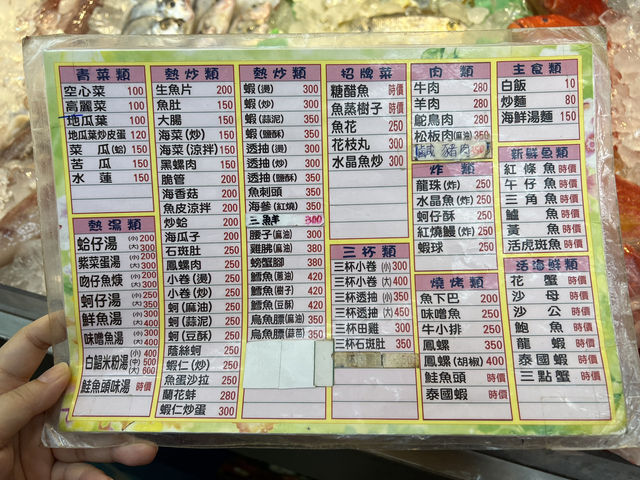 青菜類
空心菜 100
高麗菜 100
地瓜葉 100
地瓜葉炒皮蛋 120
菜瓜(蛤) 150
苦瓜 150
水蓮 150
熱湯類
蛤仔湯 (小)200 (大)300
紫菜蛋湯 (小)200 (大)300
吻仔魚焿 (小)200 (大)300
蚵仔湯 (小)250 (大)350
鮮魚湯 (小)300 (大)400
味噌魚湯 (小)300 (大)400
白鯧米粉湯 (小)400 (中)500 (大)600
鮭魚頭味湯 時價
熱炒類
生魚片 200
魚肚 150
大腸 150
海菜(炒) 150
海菜(涼拌) 150
黑螺肉 150
脆管 200
海香菇 200
魚皮涼拌 200
炒蛤 200
海瓜子 200
石斑肚 250
鳳螺肉 250
小卷(燙) 250
小卷(炒) 250
蚵(麻油) 250
蚵(蒜泥) 250
蚵(豆酥) 250
蔭絲蚵 250
蝦仁(炒) 250
魚蛋沙拉 250
蘭花蚌 280
蝦仁炒蛋 300
熱炒類
蝦(燙) 300
蝦(炒) 300
蝦(蒜泥) 350
蝦(鹽酥) 350
透抽(燙) 300
透抽(炒) 300
透抽(鹽酥) 350
魚刺頭 350
海參(紅燒) 350
三鮮 300
腰子(麻油) 300
雞腓(麻油) 350
螃蟹腳 380
鱈魚(蔥油) 420
鱈魚(樹子) 420
鱈魚(豆酥) 420
烏魚膘(麻油) 350
烏魚膘(蒜苗) 350
招牌菜
糖醋魚 時價
魚蒸樹子 時價
魚花 250
花枝丸 300
水晶魚炒 300
三杯類
三杯小卷 (小)300
三杯小卷 (大)400
三杯透抽 (小)350
三杯透抽 (大)450
三杯田雞 300
三杯石斑肚 350
肉類
牛肉 280
羊肉 280
鴕鳥肉 280
松板肉(麻油) 350
鹹豬肉
炸類
龍珠(炸) 250
水晶魚(炸) 250
蚵仔酥 250
紅燒鰻(炸) 250
蝦球 250
燒烤類
魚下巴 200
味噌魚 250
牛小排 250
鳳螺 350
鳳螺(胡椒) 400
鮭魚頭 時價
泰國蝦 時價
主食類
白飯 10
炒麵 80
海鮮湯麵 150
新鮮魚類
紅條魚 時價
午仔魚 時價
三角魚 時價
鱸魚 時價
黃魚 時價
活虎斑魚 時價
活海鮮類
花蟹 時價
沙母 時價
沙公 時價
鮑魚 時價
龍蝦 時價
泰國蝦 時價
三點蟹 時價